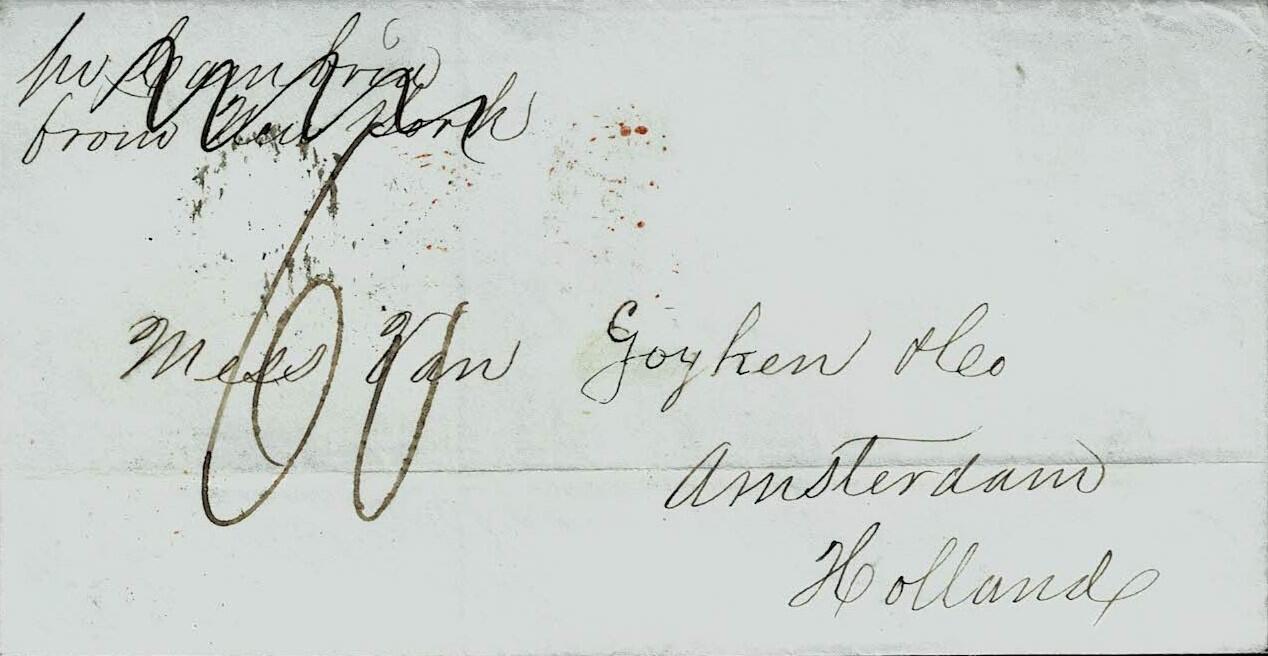 pr Cambria
from New York
60
Mess Van Goyken & Co
Amsterdam
Holland